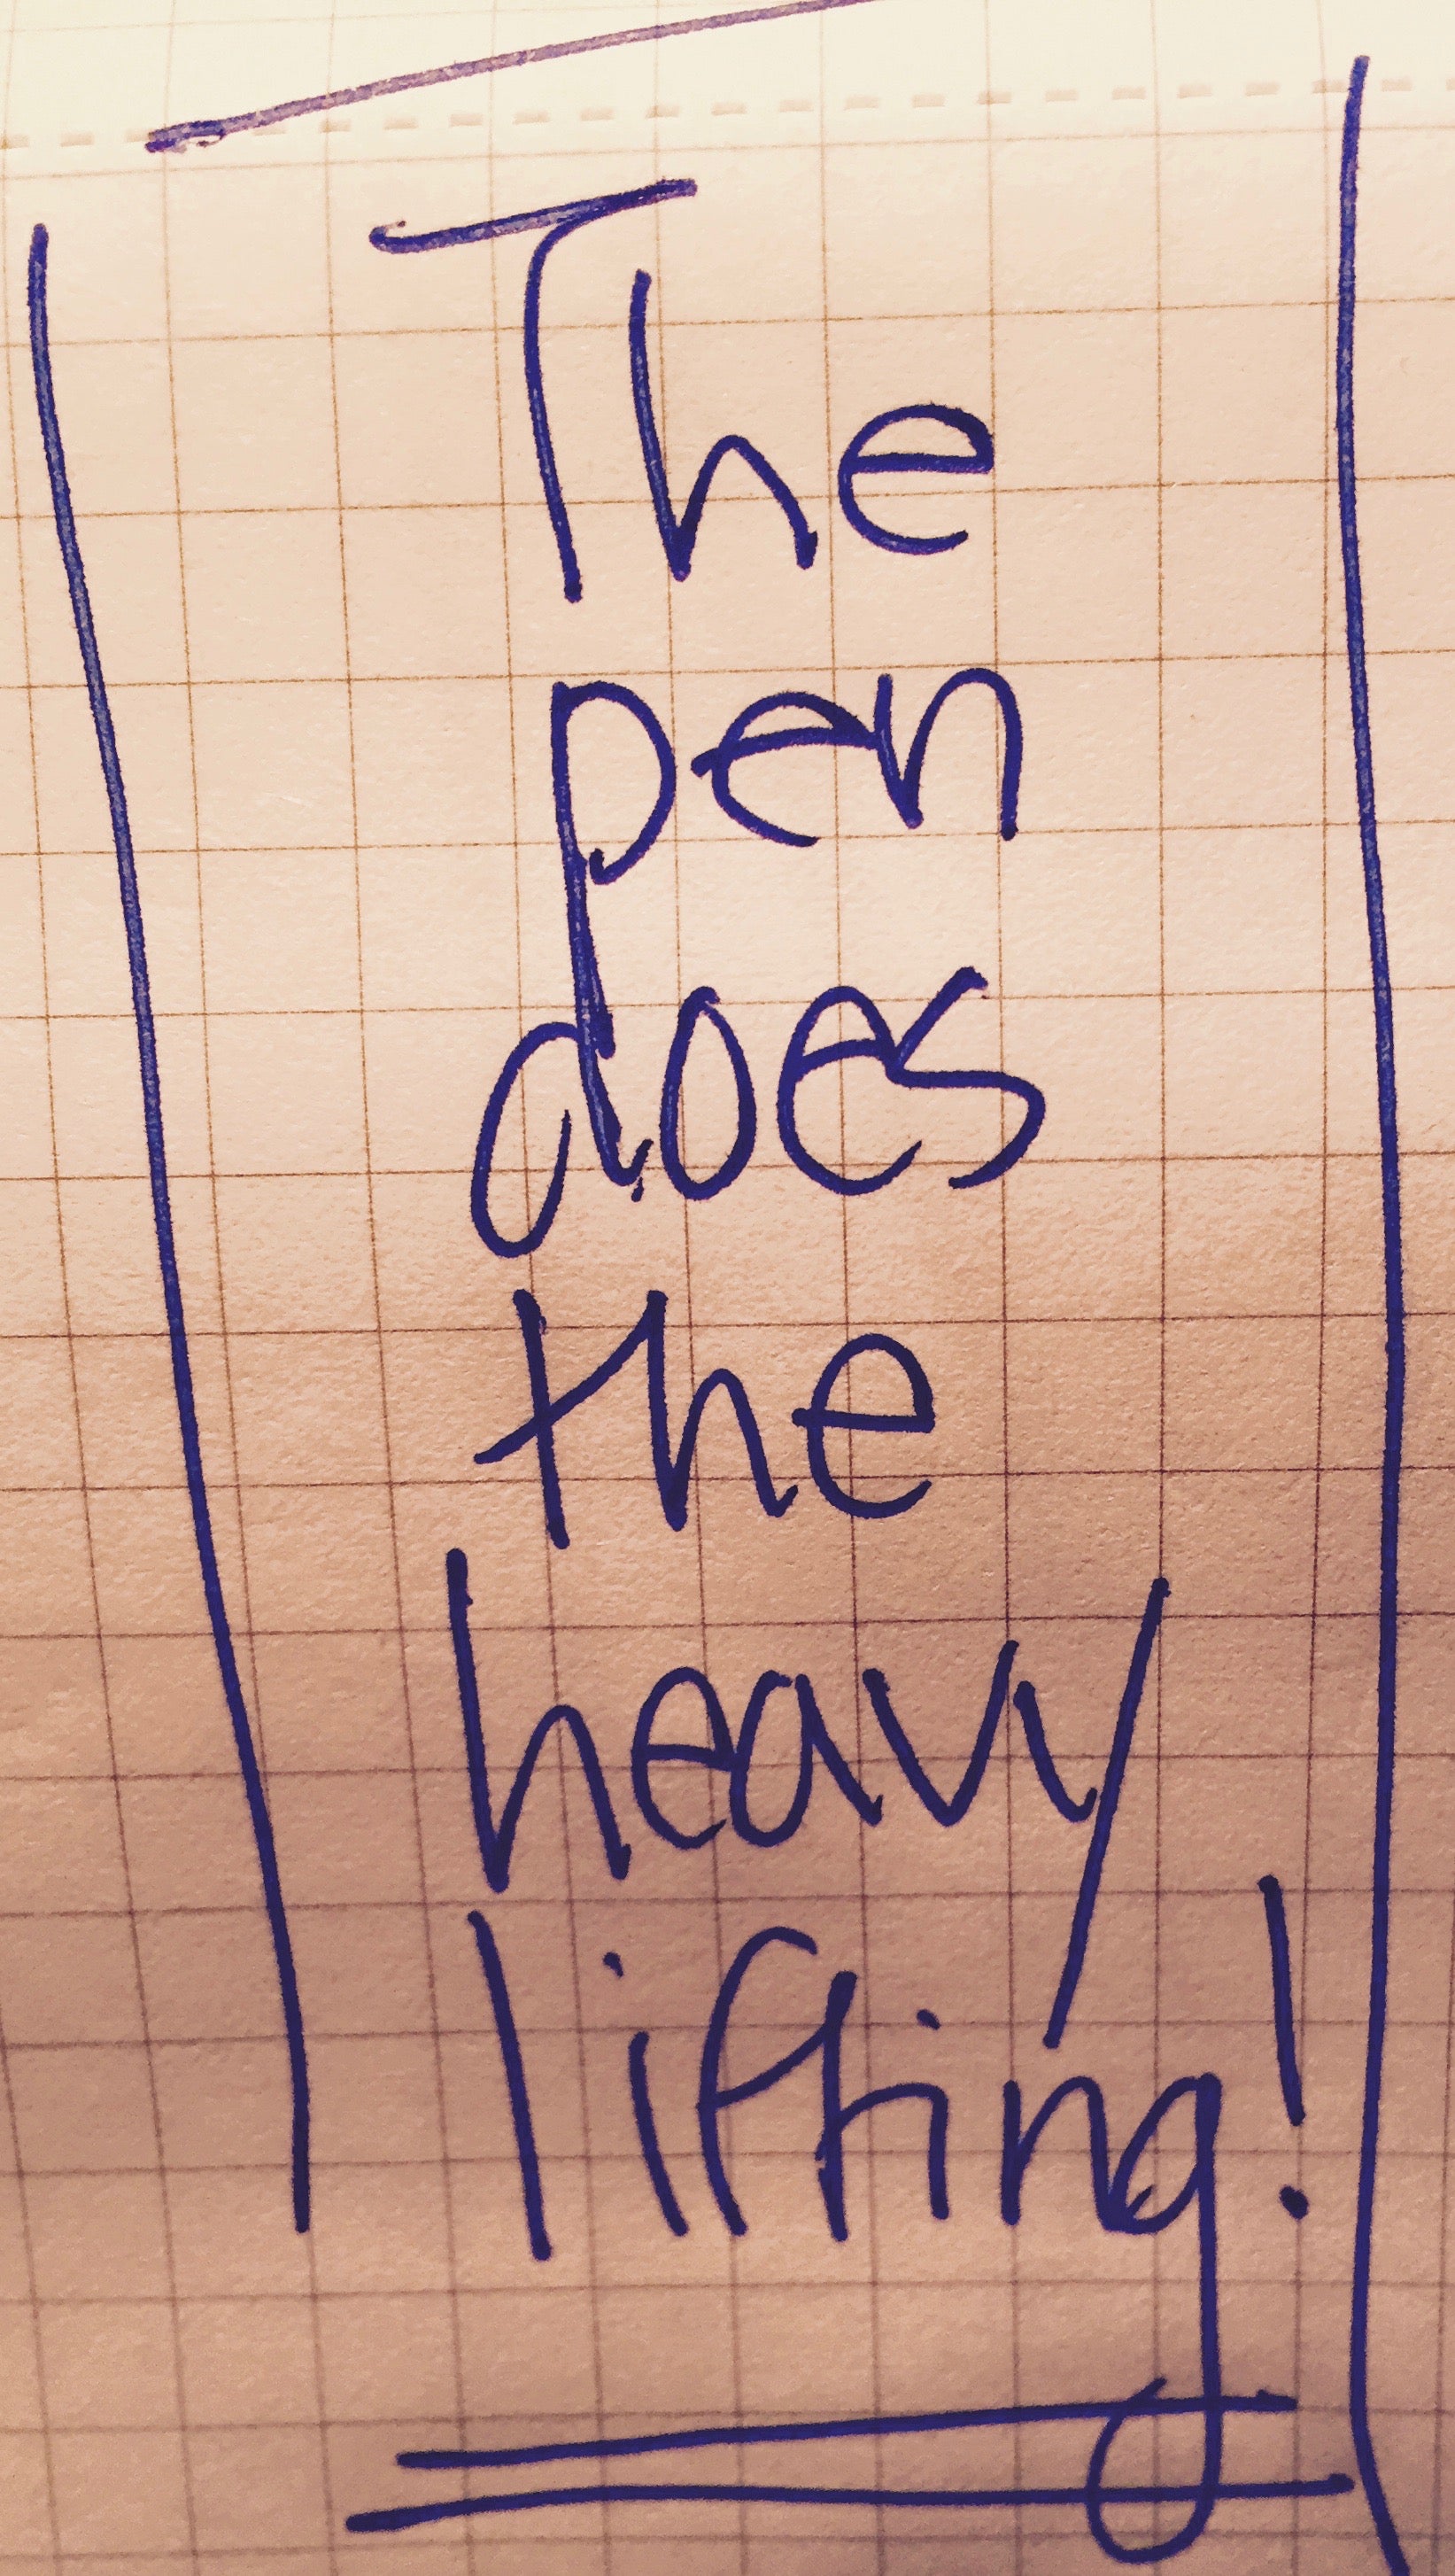 The
pen
does
the
heavy
lifting!